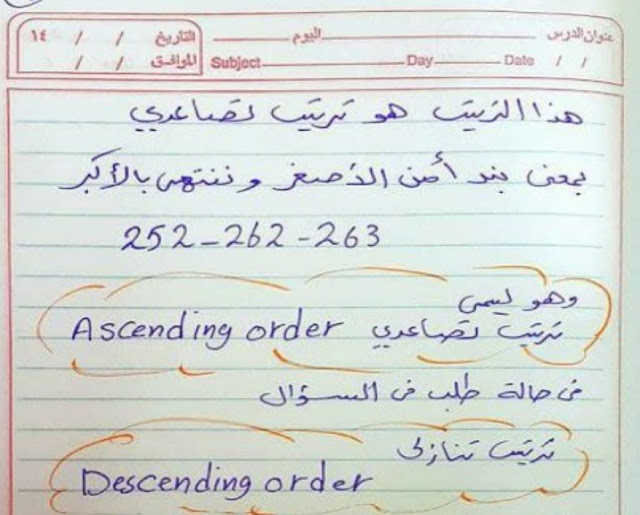 عنوان الدرس اليوم التاريخ / / ١٤
Subject Day Date / / الموافق / /
هذا الترتيب هو ترتيب تصاعدي
بمعنى نبدأ من الأصغر وننتهى بالأكبر
252 - 262 - 263
وهو يسمى
ترتيب تصاعدي Ascending order
فى حالة طلب فى السؤال
ترتيب تنازلى
Descending order